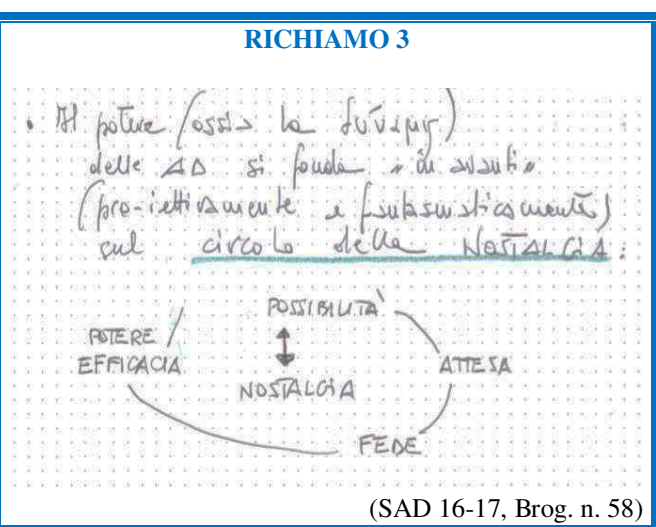 RICHIAMO 3
• Il potere (ossia la δύναμις)
delle AD si fonda "in avanti"
(pro-iettivamente e fantasmaticamente)
sul circolo della NOSTALGIA:
POSSIBILITÀ
POTERE /
EFFICACIA
ATTESA
NOSTALGIA
FEDE
(SAD 16-17, Brog. n. 58)